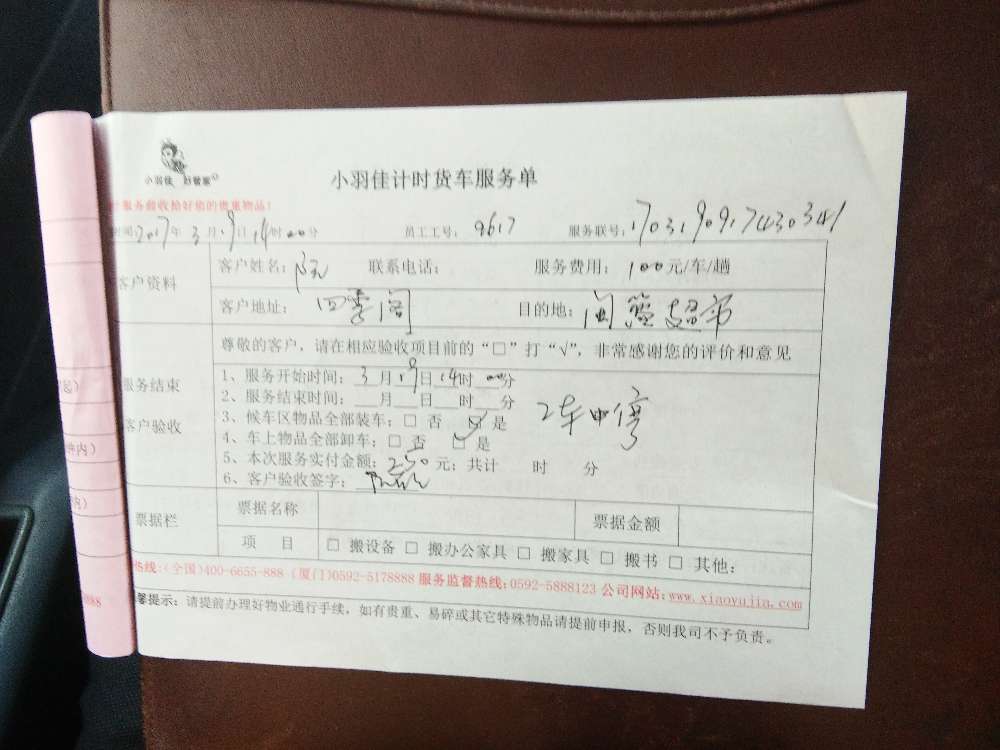 小羽佳 好管家
小羽佳计时货车服务单
服务验收 给好您的贵重物品！
时间:2017年3月19日14时00分 员工工号: 9617 服务联号: 1703190917430341
客户资料
客户姓名: 阮 联系电话: 服务费用: 100元/车/趟
客户地址: 四季阁 目的地: 闽篮超市
尊敬的客户，请在相应验收项目前的“□”打“√”，非常感谢您的评价和意见
服务结束
客户验收
1、服务开始时间: 3月19日14时00分
2、服务结束时间: __月__日__时__分
3、候车区物品全部装车: □ 否 ☑ 是
4、车上物品全部卸车: □ 否 ☑ 是
5、本次服务实付金额: 250元: 共计 时 分
6、客户验收签字:
2车中
票据栏
票据名称 票据金额
项 目 □ 搬设备 □ 搬办公家具 □ 搬家具 □ 搬书 □ 其他:
热线:(全国)400-6655-888 (厦门)0592-5178888 服务监督热线:0592-5888123 公司网站:www.xiaoyujia.com
馨提示: 请提前办理好物业通行手续，如有贵重、易碎或其它特殊物品请提前申报，否则我司不予负责。